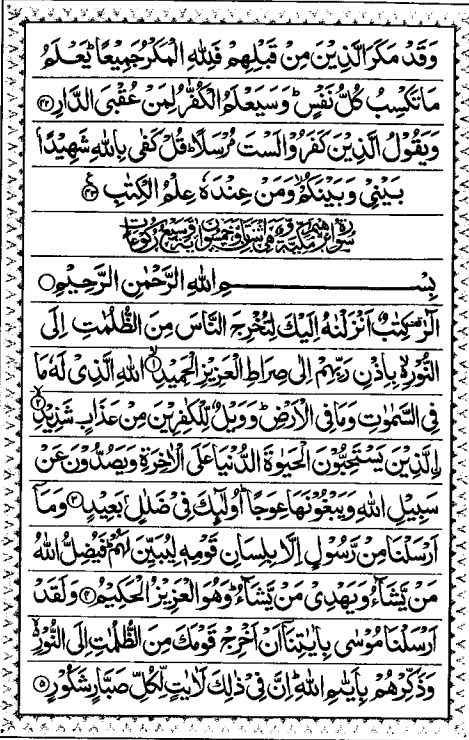 وَقَدْ مَكَرَ الَّذِيْنَ مِنْ قَبْلِهِمْ فَلِلّٰهِ الْمَكْرُ جَمِيْعًا ؕ يَعْلَمُ
مَا تَكْسِبُ كُلُّ نَفْسٍ ؕ وَسَيَعْلَمُ الْكُفّٰرُ لِمَنْ عُقْبَى الدَّارِ ﴿۴۲﴾
وَيَقُوْلُ الَّذِيْنَ كَفَرُوْا لَسْتَ مُرْسَلًا ؕ قُلْ كَفٰى بِاللّٰهِ شَهِيْدًا
بَيْنِيْ وَبَيْنَكُمْ ۙ وَمَنْ عِنْدَهٗ عِلْمُ الْكِتٰبِ ﴿۴۳﴾
بِسْمِ اللّٰهِ الرَّحْمٰنِ الرَّحِيْمِ
الٓرٰ ۟ كِتٰبٌ اَنْزَلْنٰهُ اِلَيْكَ لِتُخْرِجَ النَّاسَ مِنَ الظُّلُمٰتِ اِلَى
النُّوْرِ ۙ بِاِذْنِ رَبِّهِمْ اِلٰى صِرَاطِ الْعَزِيْزِ الْحَمِيْدِ ۙ﴿۱﴾ اللّٰهِ الَّذِيْ لَهٗ مَا
فِي السَّمٰوٰتِ وَمَا فِي الْاَرْضِ ؕ وَوَيْلٌ لِّلْكٰفِرِيْنَ مِنْ عَذَابٍ شَدِيْدِ ۙ﴿۲﴾
ِۨالَّذِيْنَ يَسْتَحِبُّوْنَ الْحَيٰوةَ الدُّنْيَا عَلَى الْاٰخِرَةِ وَيَصُدُّوْنَ عَنْ
سَبِيْلِ اللّٰهِ وَيَبْغُوْنَهَا عِوَجًا ؕ اُولٰٓئِكَ فِيْ ضَلٰلٍۭ بَعِيْدٍ ﴿۳﴾ وَمَاۤ
اَرْسَلْنَا مِنْ رَّسُوْلٍ اِلَّا بِلِسَانِ قَوْمِهٖ لِيُبَيِّنَ لَهُمْ ؕ فَيُضِلُّ اللّٰهُ
مَنْ يَّشَآءُ وَيَهْدِيْ مَنْ يَّشَآءُ ؕ وَهُوَ الْعَزِيْزُ الْحَكِيْمُ ﴿۴﴾ وَلَقَدْ
اَرْسَلْنَا مُوْسٰى بِاٰيٰتِنَاۤ اَنْ اَخْرِجْ قَوْمَكَ مِنَ الظُّلُمٰتِ اِلَى النُّوْرِ ۙ
وَذَكِّرْهُمْ بِاَيّٰىمِ اللّٰهِ ؕ اِنَّ فِيْ ذٰلِكَ لَاٰيٰتٍ لِّكُلِّ صَبَّارٍ شَكُوْرٍ ﴿۵﴾